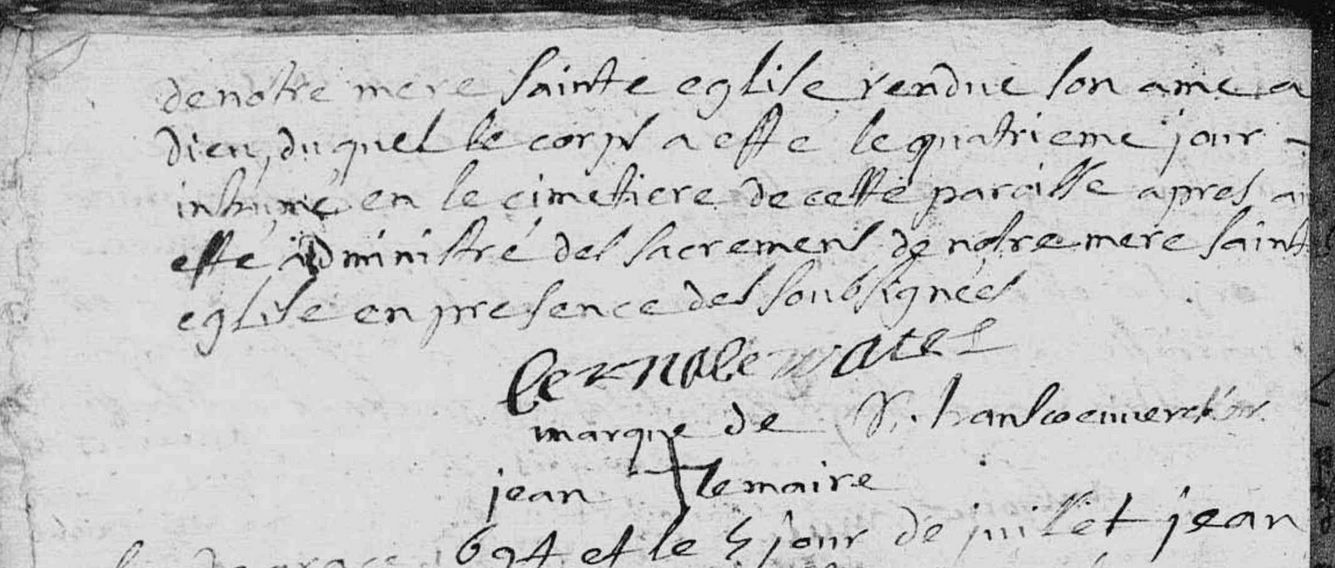 de nôtre mere sainte eglise rendue son ame a
dieu, duquel le corps a esté le quatrieme jour -
inhumé en le cimetiere de cette paroisse apres a
esté administré des sacremens de nostre mere saint
eglise en presence des soubsignées
marque de
jean lemaire
de grace 1694 et le 5 jour de juillet jean